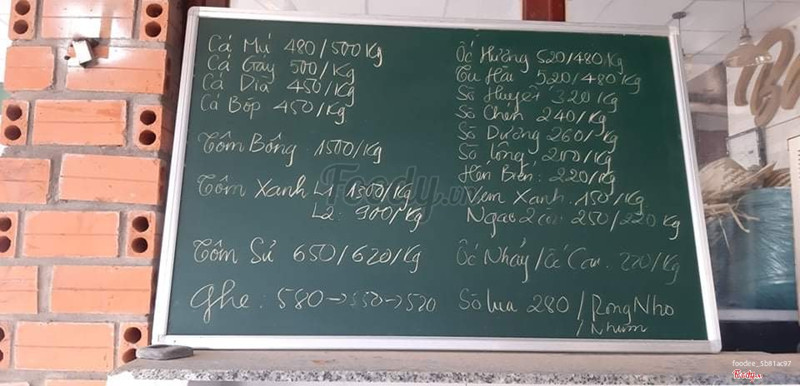 Cá Mú 480/500Kg
Cá Gáy 500/Kg
Cá Dìa 450/Kg
Cá Bớp 450/Kg
Tôm Bông 1500/Kg
Tôm Xanh L1 1300/Kg
L2: 900/Kg
Tôm Sú 650/620/Kg
Ghẹ: 580→550→520
Ốc Hương 520/480Kg
Tu Hài 520/480Kg
Sò Huyết 320/Kg
Sò Chén 240/Kg
Sò Dương 260/Kg
Sò lông 200/Kg
Hến Biển: 220/Kg
Vẹm Xanh: 150/Kg
Ngao 2 cồi: 250/220 Kg
Ốc Nhảy/Ốc 220/Kg
Sò lụa 280/Rong Nho
/Nhum
Foody.vn
foodee_5b81ac97
Foody.vn